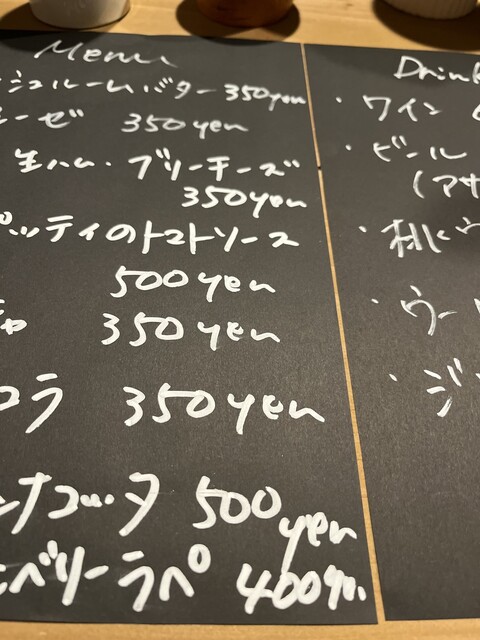 Menu
シュルームバター 350yen
ーゼ 350 yen
生ハム・ブリーチーズ
350yen
ッティのトマトソース
500 yen
ャ 350 yen
ラ 350 yen
ナコッタ 500 yen
ベリーラペ 400 yen
Drink
・ワイン
・ビール
(アサ
・桃 に ウ
・ウー
・ジ